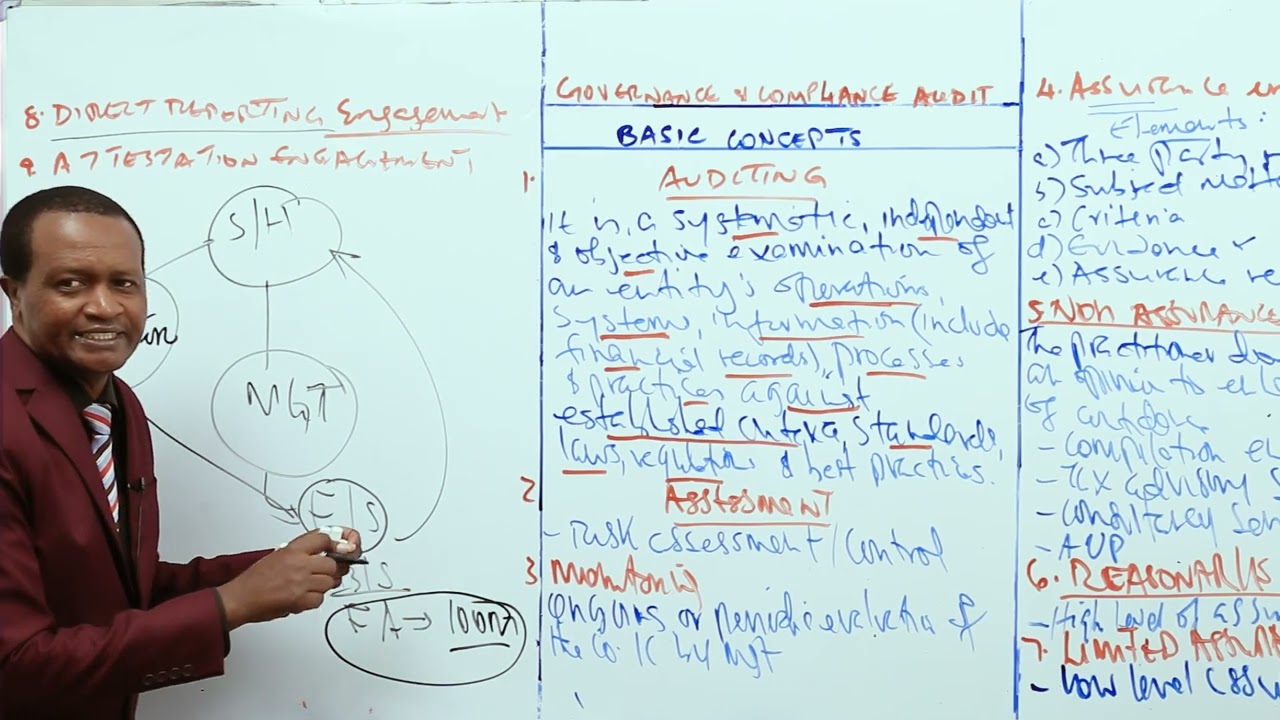 8. DIRECT REPORTING Engagement
9. ATTESTATION ENGAGEMENT
S/H
MGT
F/S
B/S
FA → 100m
GOVERNANCE & COMPLIANCE AUDIT
BASIC CONCEPTS
1. AUDITING
It is a systematic, independent
& objective examination of
an entity's operations,
system, information (include
financial records), processes
& practices against
established criteria, standards,
laws, regulations & best practices.
2 Assessment
- Risk assessment/control
3 Monitoring
Ongoing or periodic evaluation of
the co. IC by mgt
4. Assurance en
Elements:
a) Three party
b) Subject matte
c) Criteria
d) Evidence ✓
e) Assurance re
5. NON ASSURANCE
The practitioner do
an opinion to en
of
- compilation e
- Tax advisory S
- consultancy Ser
- AUP
6. REASONABLE
- High level of assu
7. LIMITED ASSURA
- Low level assu